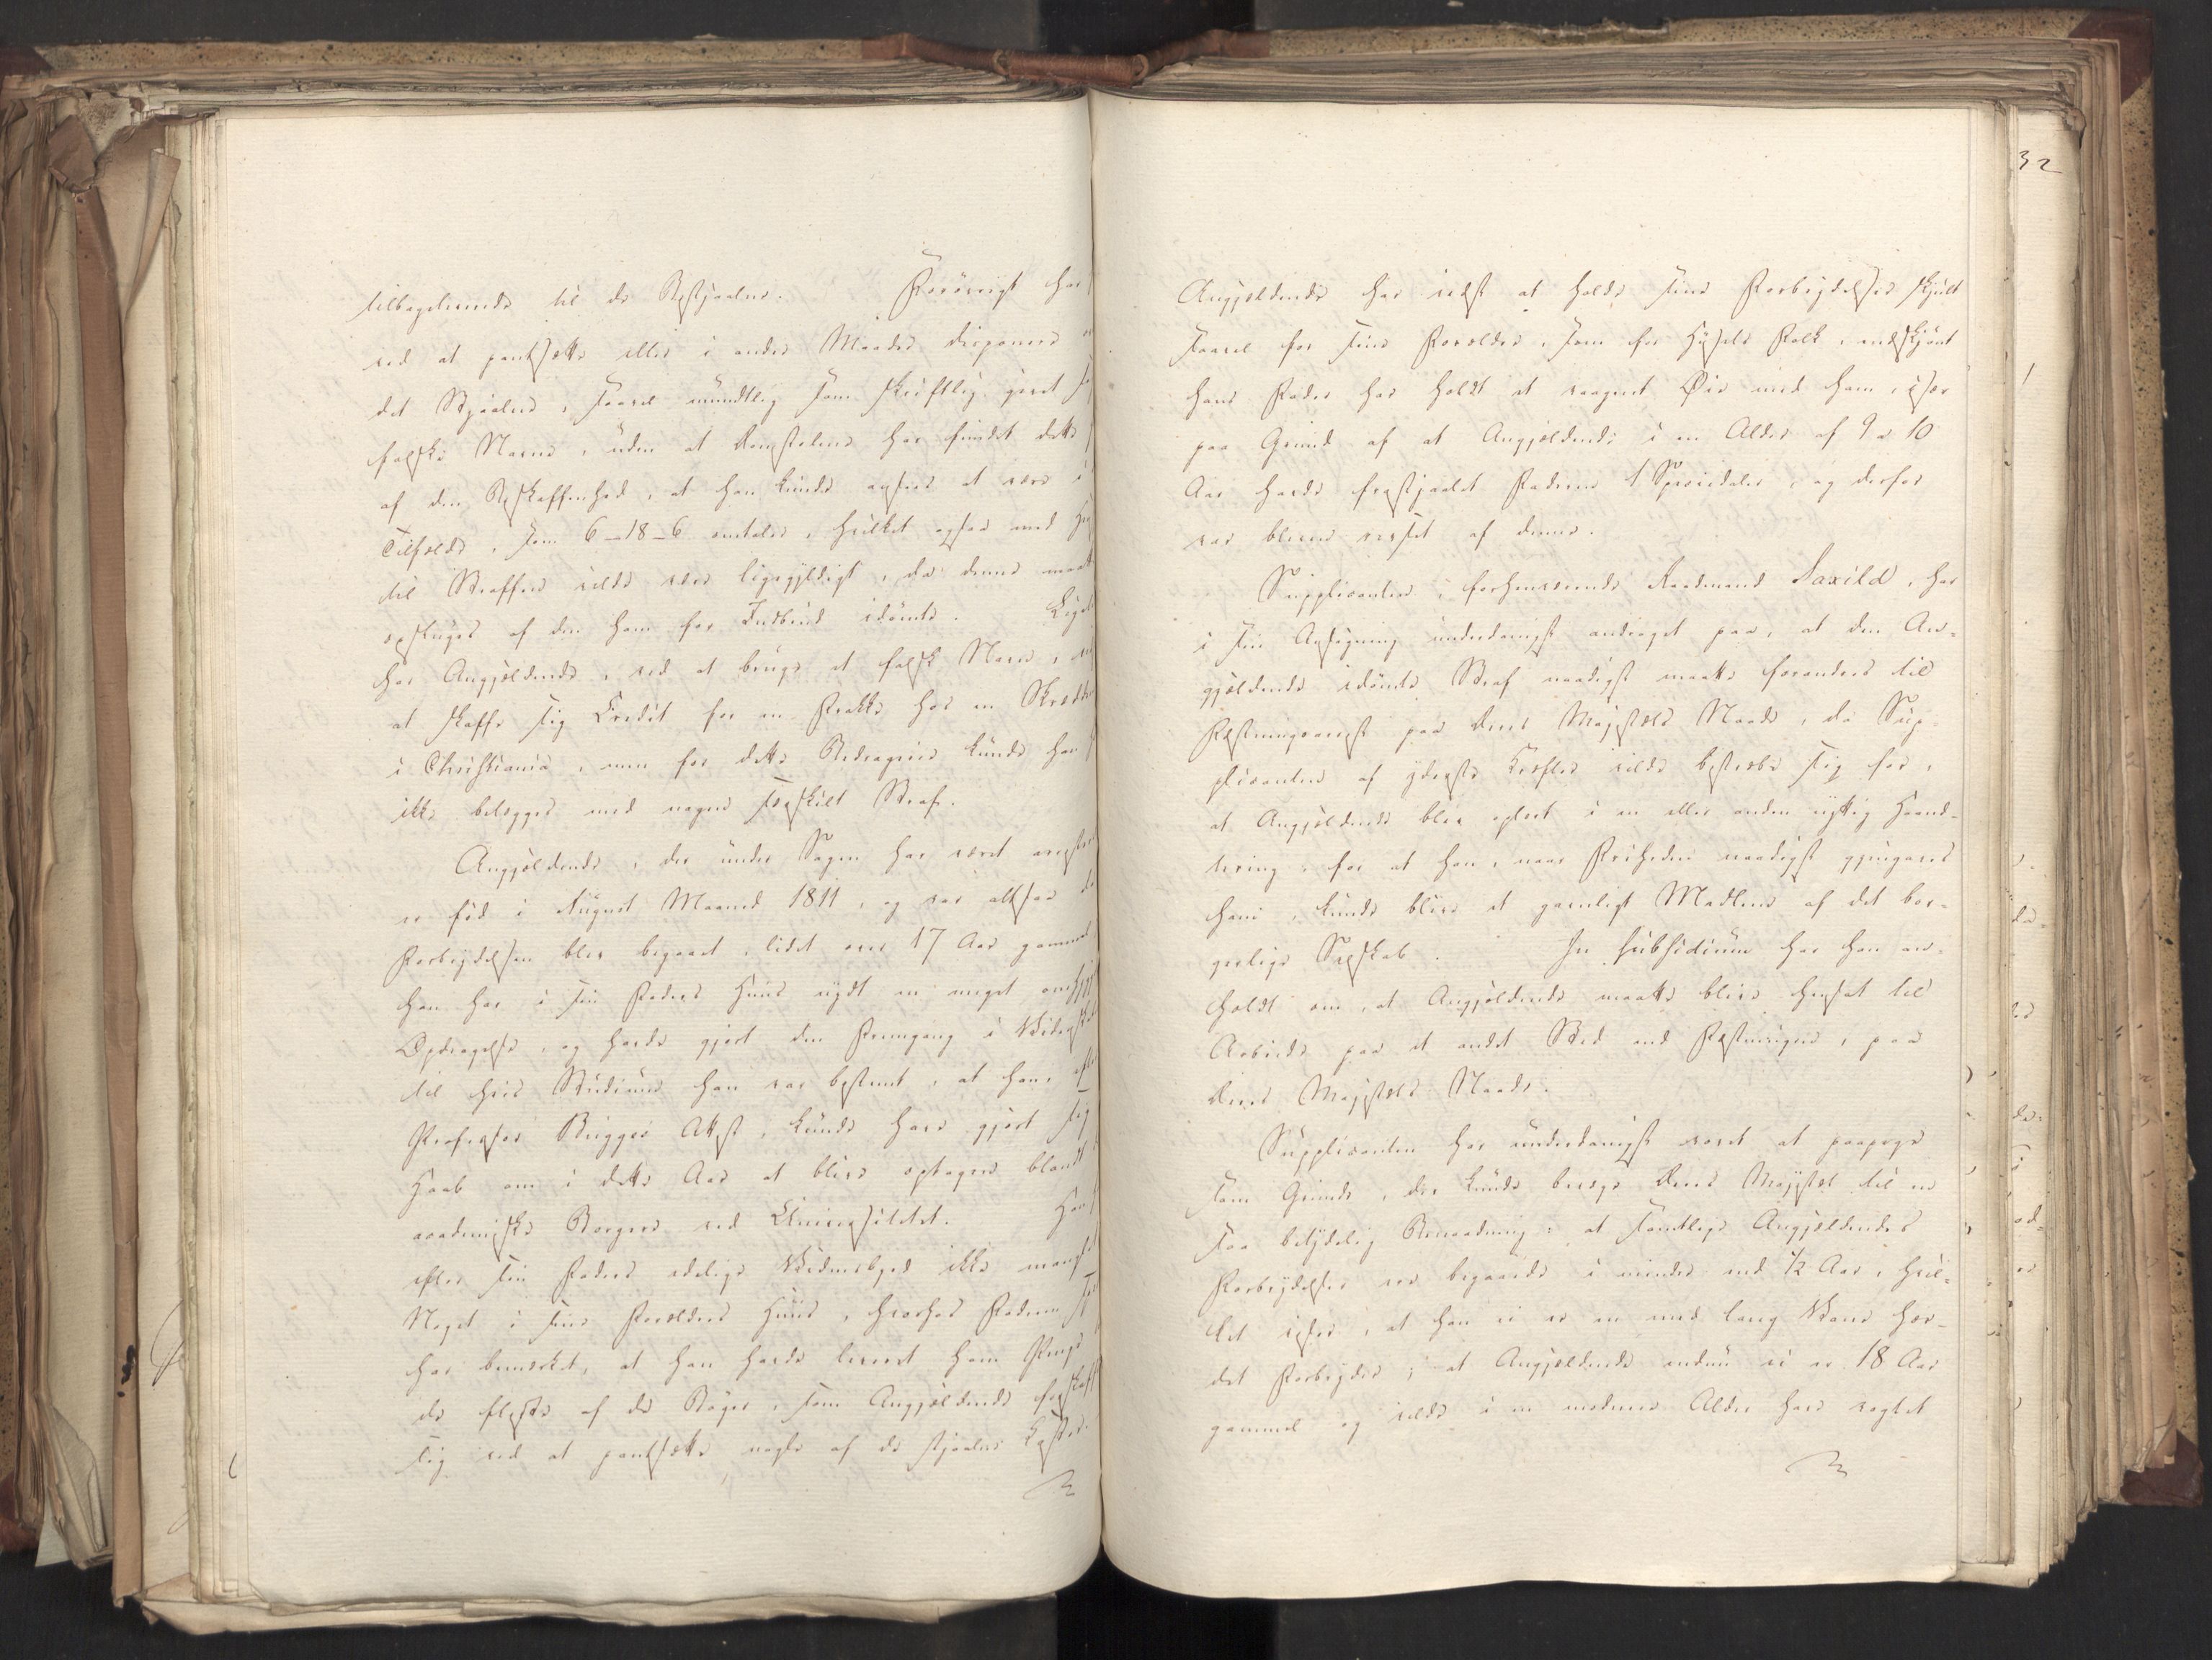 tilbageleverede til de Bestjaalne. Forövrigt har
ved at pantsætte eller i anden Maade disponere
det Stjaalne, saavel mundtlig som skriftlig givet
falske Navne, uden at Rigsretten har fundet dette
af den Beskaffenhed, at han kunde ansees at være i
Tilfælde, som 6-18-6 omtaler, hvilket ogsaa med
til Straffen vilde være ligegyldigt, da denne maatte
opsluges af den ham for Indbrud idömte.
har Angjeldende, ved at bruge et falsk Navn,
at skaffe sig Credit for en Frakke hos en Skrædder
i Christiania, men for dette Bedragerie kunde han
ikke belægges med nogen særskilt Straf.
Angjeldende, der under Sagen har været arresteret
er föd i August Maaned 1811, og var altsaa da
Forbrydelsen blev begaaet, lidet over 17 Aar gammel
han har i sin Faders Huus nydt en meget omhyggelig
Opdragelse, og havde gjort den Fremgang i Videnskab
til hvis Studium han var bestemt, at han, efter
Professor Bugges Attest, kunde have gjort sig
Haab om i dette Aar at blive optagen blandt
academiske Borgere ved Universitetet. Han
efter sin Faders edelige Vidnesbyrd ikke manglet
Noget i sine Forældres Huus, hvorhos Faderen
har bemærket, at han havde leveret ham Penge
de fleste af de Böger, som Angjeldende forskaffede
sig ved at pantsætte nogle af de stjaalne Koster.
32
Angjeldende har vidst at holde sine Forbrydelser skjult
saavel for sine Forældre, som for Husets Folk, endskjönt
hans Fader har holdt et vaagent Öie med ham, især
paa Grund af at Angjeldende i en Alder af 9 a 10
Aar havde frastjaalet Faderen 1 Speciedaler, og derfor
var bleven revset af denne.
Supplicanten, forhenværende Raadmand Saxild, har
i sin Ansögning underdanigst andraget paa, at den An-
gjeldende idömte Straf naadigst maatte forandres til
Fæstningsarrest paa Deres Majestæts Naade, da Sup-
plicanten af yderste Kræfter vilde bestræbe sig for,
at Angjeldende blev oplært i en eller anden nyttig Haand-
tering, for at han, naar Friheden naadigst gjengaves
ham, kunde blive et gavnligt Medlem af det bor-
gerlige Selskab. In subsidium har han an-
holdt om, at Angjeldende maatte blive hensat til
Arbeide paa et andet Sted end Fæstningen, paa
Deres Majestæts Naade.
Supplicanten har underdanigst vovet at paapege
som Grunde, der kunde bevæge Deres Majestæt til en
saa betydelig Benaadning: at samtlige Angjeldendes
Forbrydelser ere begaaede i mindre end ½ Aar, hvil-
ket viser, at han ei er en ved lang Vane hær-
det Forbryder; at Angjeldende endnu ei er 18 Aar
gammel og vilde i en modnere Alder have vogtet